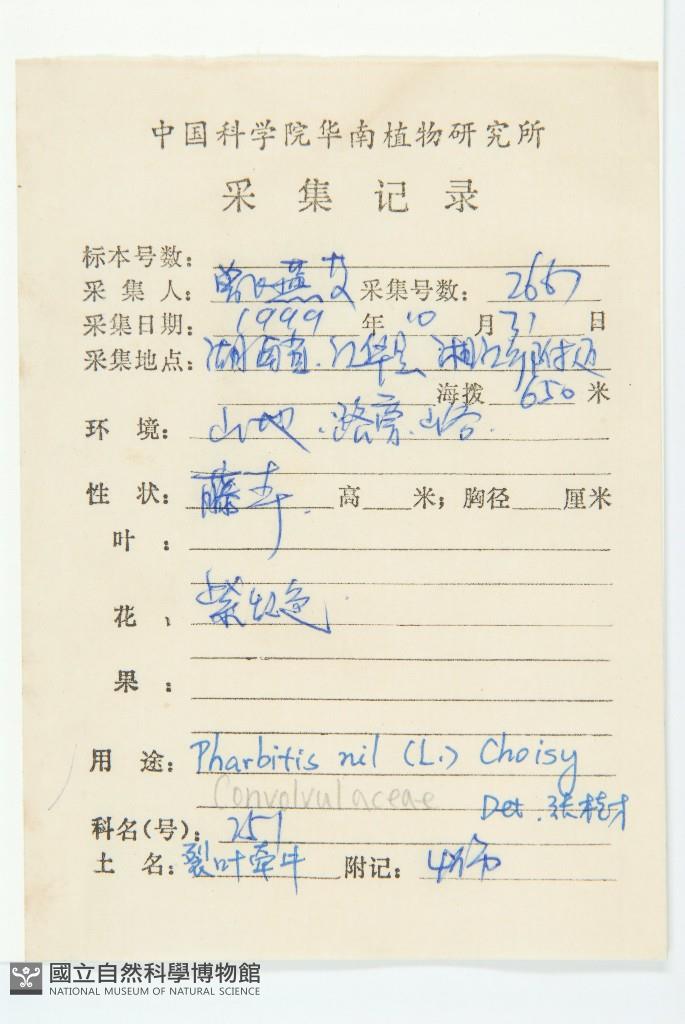 中国科学院华南植物研究所
采集记录
标本号数:
采集人: 曾飞燕 采集号数: 2667
采集日期: 1999年10月31日
采集地点: 湖南省.江华县 湘江乡附近
海拨 650 米
环境: 山地.路旁.山谷.
性状: 藤本. 高 米; 胸径 厘米
叶:
花、 紫红色
果:
用途: Pharbitis nil (L.) Choisy
Convolvulaceae Det. 张桂才
科名(号): 251
土名: 裂叶牵牛 附记: 4份
國立自然科學博物館
NATIONAL MUSEUM OF NATURAL SCIENCE